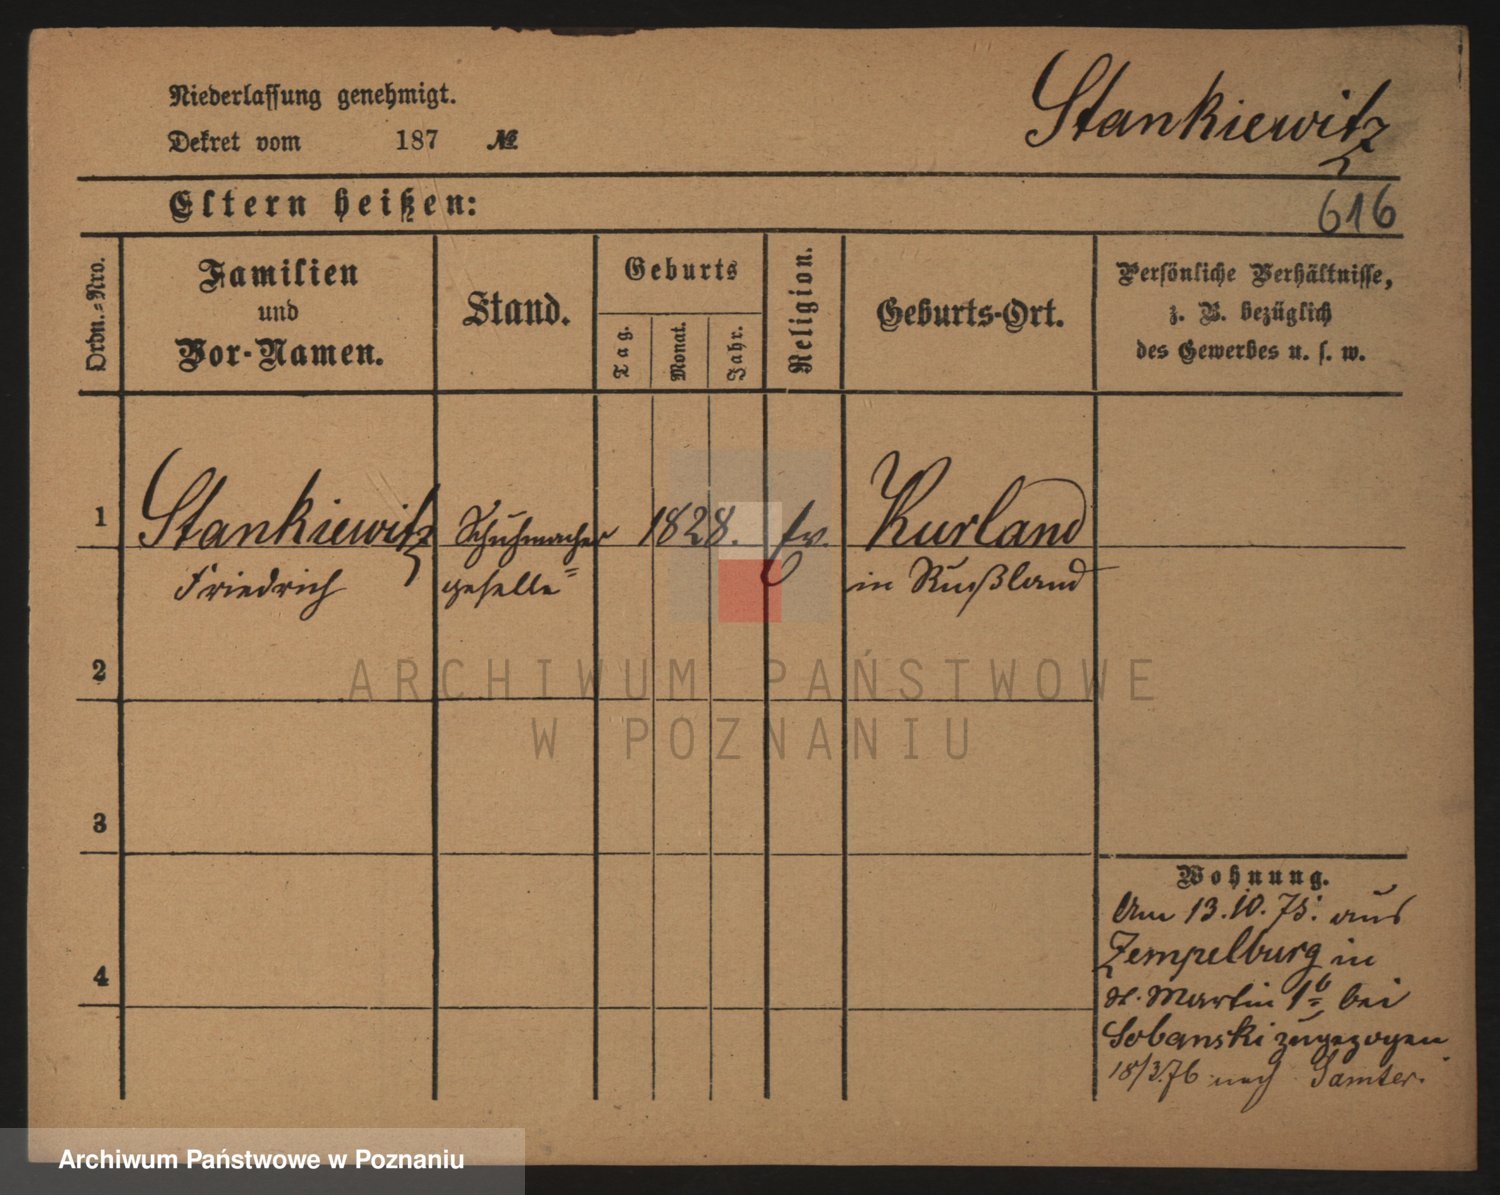 Niederlassung genehmigt.
Dekret vom 187 №
Stankiewitz
Eltern heißen:
616
Ordn.-Nro.
Familien
und
Vor-Namen.
Stand.
Geburts
Tag.
Monat.
Jahr.
Religion.
Geburts-Ort.
Persönliche Verhältnisse,
z. B. bezüglich
des Gewerbes u. s. w.
1 Stankiewitz Schuhmacher 1828. ev. Kurland
Friedrich geselle in Rußland
2
3
4
Wohnung.
Am 13.10.75. aus
Zempelburg in
St. Martin 1 b bei
Sobanski zugezogen
18/3.76 nach Samter.
ARCHIWUM PAŃSTWOWE
W POZNANIU
Archiwum Państwowe w Poznaniu